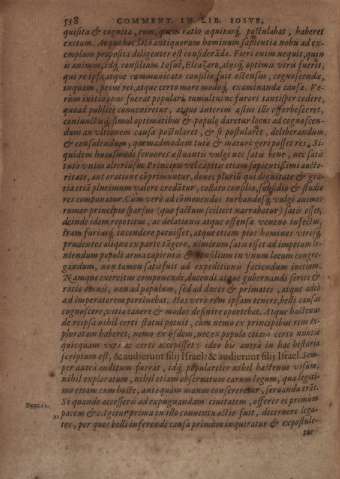 538 COMMENT. IN LIB. IOSVE,
quisita & cognita, rem, quem ratio aequitasq́; postulabat, haberet
exitum. Atque hoc loco antiquorum hominum sapientia nobis ad ex-
emplum proposita diligenter est consideranda. Fieri enim nequit, quin
is animus, idq́; consilium Iosuë, Eleazaro, atq́; optimis viris fuerit,
quod re ipsa, atque communicato consilio fuit ostensum, cognoscenda,
inquam, prius rei, atque certo more modoq́; examinanda causa. Ve-
rùm initio cùm fuerat popularis tumultus; furore tantisper cedere,
quoad publicè conveniretur, atque interim aestus ille
coniunctisq́; simul optimatibus & populo daretur locus ad cognoscen-
dum an ultionem causa postularet, & si postularet, deliberandum
& consultandum, quo modo tutò & maturè geri posset res. Si-
quidem huiusmodi furores aestuantis vulgi nec satis benè, nec satis
tutò unius alterius Principum vel capitis etiam sapientissimi aucto-
ritate, aut oratione comprimuntur, donec plurìs qui dignitate & gra-
tia etiam plurimum valere credantur, collato consilio, subsidio & studio
res componatur. Cùm verò ad commovendas turbandasq́; vulgi animos
rumor principio sparsus (quo factum scilicet narrabatur) satis esset,
deinde idem repetitus, ac delationis atque offensae veneno infectus,
iram furiasq́; incendere potuisset, atque etiam pios homines virosq́;
prudentes aliqua ex parte tangere, nimirum satis esset ad impetum le-
niendum populi arma capientis & consilium in unum locum congre-
gandum, non tamen satis fuit ad expeditionis faciendae initium.
Namque exercitum componendi, ducendi, atque gubernandi forte &
ratio omnis, non ad populum, sed ad duces & primates, atque adeò
ad imperatorem pertinebat. Hos verò rem ipsam tenere, belli causas
cognoscere, vim tacere & modos definire oportebat. Atque hactenus
de re ipsa nihil certi statui potuit, cùm nemo ex principibus rem ex-
ploratam haberet, nemo ex eisdem, neque populo etiam certo nuncio
quicquam veri ac certi accepisset: ideo bis antea in hac historia
scriptum est, & audierunt filij Israel: & audierunt filij Israel. Sem-
per autem auditum fuerat, idq́; populariter nihil hactenus visum,
nihil exploratum, nihil etiam observatum earum legum, quae legiti-
mo etiam cum hoste, antequam manus consererentur, servanda erāt.
Si quando accesseris ad expugnandam civitatem, offeres ei primùm
pacem & c. Igitur prima in illo conventu actio fuit, decernere lega-
tos, per quos belli inferendi causa primùm inquiratur & expostule-
tur